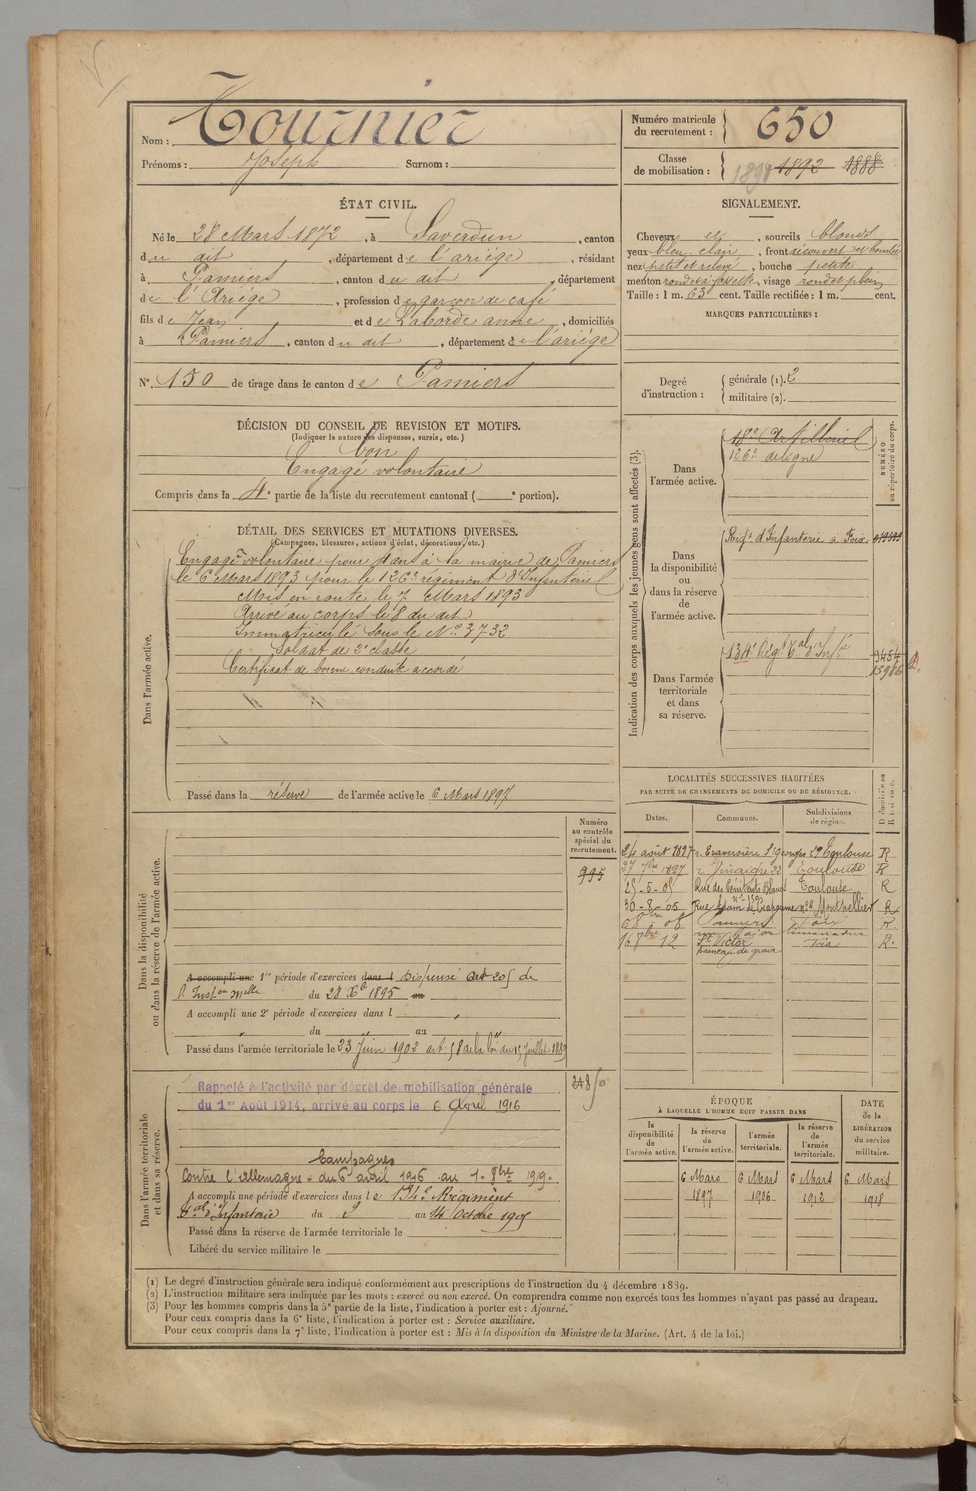 Nom : Tournier
Prénoms : Joseph Surnom :
Numéro matricule du recrutement : 650
Classe de mobilisation : 1892 1888
ÉTAT CIVIL.
Né le 28 Mars 1872, à Saverdun, canton
du dit, département de l'ariége, résidant
à Pamiers, canton du dit, département
de l'Ariége, profession de garçon de café
fils de Jean et de Laborde anne, domiciliés
à Pamiers, canton du dit, département de l'ariége
N° 150 de tirage dans le canton de Pamiers
SIGNALEMENT.
Cheveux et, sourcils blonds
yeux bleu clair, front découvert et bombé
nez petit et relevé, bouche petite
menton rond et à fossette, visage rond et plein
Taille : 1 m. 63 cent. Taille rectifiée : 1 m. cent.
MARQUES PARTICULIÈRES :
Degré d'instruction : générale (1). 2
militaire (2).
DÉCISION DU CONSEIL DE REVISION ET MOTIFS.
(Indiquer la nature des dispenses, sursis, etc.)
bon
Engagé volontaire
Compris dans la 4e partie de la liste du recrutement cantonal ( e portion).
DÉTAIL DES SERVICES ET MUTATIONS DIVERSES.
(Campagnes, blessures, actions d'éclat, décorations, etc.)
Dans l'armée active.
Engagé volontaire pour 4 ans à la mairie de Pamiers
le 6 Mars 1893 pour le 126e régiment d'Infanterie
Mis en route le 7 Mars 1893
Arrivé au corps le 8 du dit
Immatriculé sous le No 3732
Soldat de 2e classe
Certificat de bonne conduite accordé
Passé dans la réserve de l'armée active le 6 Mars 1897
Indication des corps auxquels les jeunes gens sont affectés (3).
NUMÉRO au répertoire du corps.
Dans l'armée active.
18e Artillerie
126e de ligne
Dans la disponibilité ou dans la réserve de l'armée active.
Regt d'Infanterie à Foix
Dans l'armée territoriale et dans sa réserve.
134e Régt Tal d'Infie
9454
15916
LOCALITÉS SUCCESSIVES HABITÉES
PAR SUITE DE CHANGEMENTS DE DOMICILE OU DE RÉSIDENCE.
Dates. Communes. Subdivisions de région. D domicile ou R résidence.
24 août 1897 Traversière St Georges 29 Toulouse R
27 7bre 1897 Toulouse R
25-5-05 Rue des Pénitents Blancs Toulouse R
30-8-05 Montpellier R
6 8bre 08 Pamiers Foix R.
16 8bre 12 St Victor Foix R.
Dans la disponibilité ou dans la réserve de l'armée active.
Numéro au contrôle spécial du recrutement.
995
A accompli une 1re période d'exercices dans l Dispensé art 205 de
l'Instion Melle du 28 Xbre 1895 au
A accompli une 2e période d'exercices dans l
du au
Passé dans l'armée territoriale le 23 Juin 1902 art 58 de la loi du 15 Juillet 1889
Dans l'armée territoriale et dans sa réserve.
Rappelé à l'activité par décret de mobilisation générale
du 1er Août 1914, arrivé au corps le 6 Avril 1916
Campagnes
Contre l'allemagne - du 6 avril 1916 au 1-8bre 1919-
A accompli une période d'exercices dans le 134e Régiment
tal d'Infanterie du 2 au 14 Octobre 1905
Passé dans la réserve de l'armée territoriale le
Libéré du service militaire le
ÉPOQUE
A LAQUELLE L'HOMME DOIT PASSER DANS
la disponibilité de l'armée active. la réserve de l'armée active. l'armée territoriale. la réserve de l'armée territoriale.
DATE de la LIBÉRATION du service militaire.
6 Mars 1897 6 Mars 1906 6 Mars 1912 6 Mars 1918
(1) Le degré d'instruction générale sera indiqué conformément aux prescriptions de l'instruction du 4 décembre 1889.
(2) L'instruction militaire sera indiquée par les mots : exercé ou non exercé. On comprendra comme non exercés tous les hommes n'ayant pas passé au drapeau.
(3) Pour les hommes compris dans la 5e partie de la liste, l'indication à porter est : Ajourné.
Pour ceux compris dans la 6e liste, l'indication à porter est : Service auxiliaire.
Pour ceux compris dans la 7e liste, l'indication à porter est : Mis à la disposition du Ministre de la Marine. (Art. 4 de la loi.)